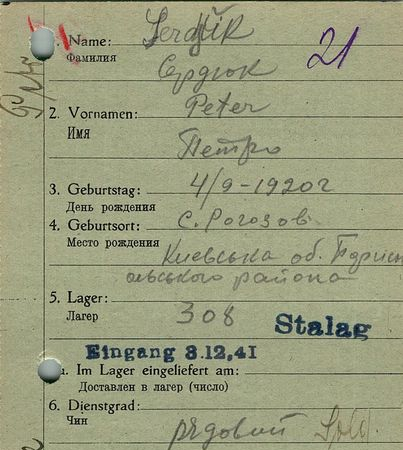 1. Name: Serdjük 21
Фамилия Сердюк
2. Vornamen: Peter
Имя Петро
3. Geburtstag: 4/9-1920г
День рождения
4. Geburtsort: с. Рогозов
Место рождения Киевська об. Борисп
ольського района
5. Lager: 308 Stalag
Лагер
Eingang 3.12.41
a. Im Lager eingeliefert am:
Доставлен в лагер (число)
6. Dienstgrad:
Чин рядовий Sold.